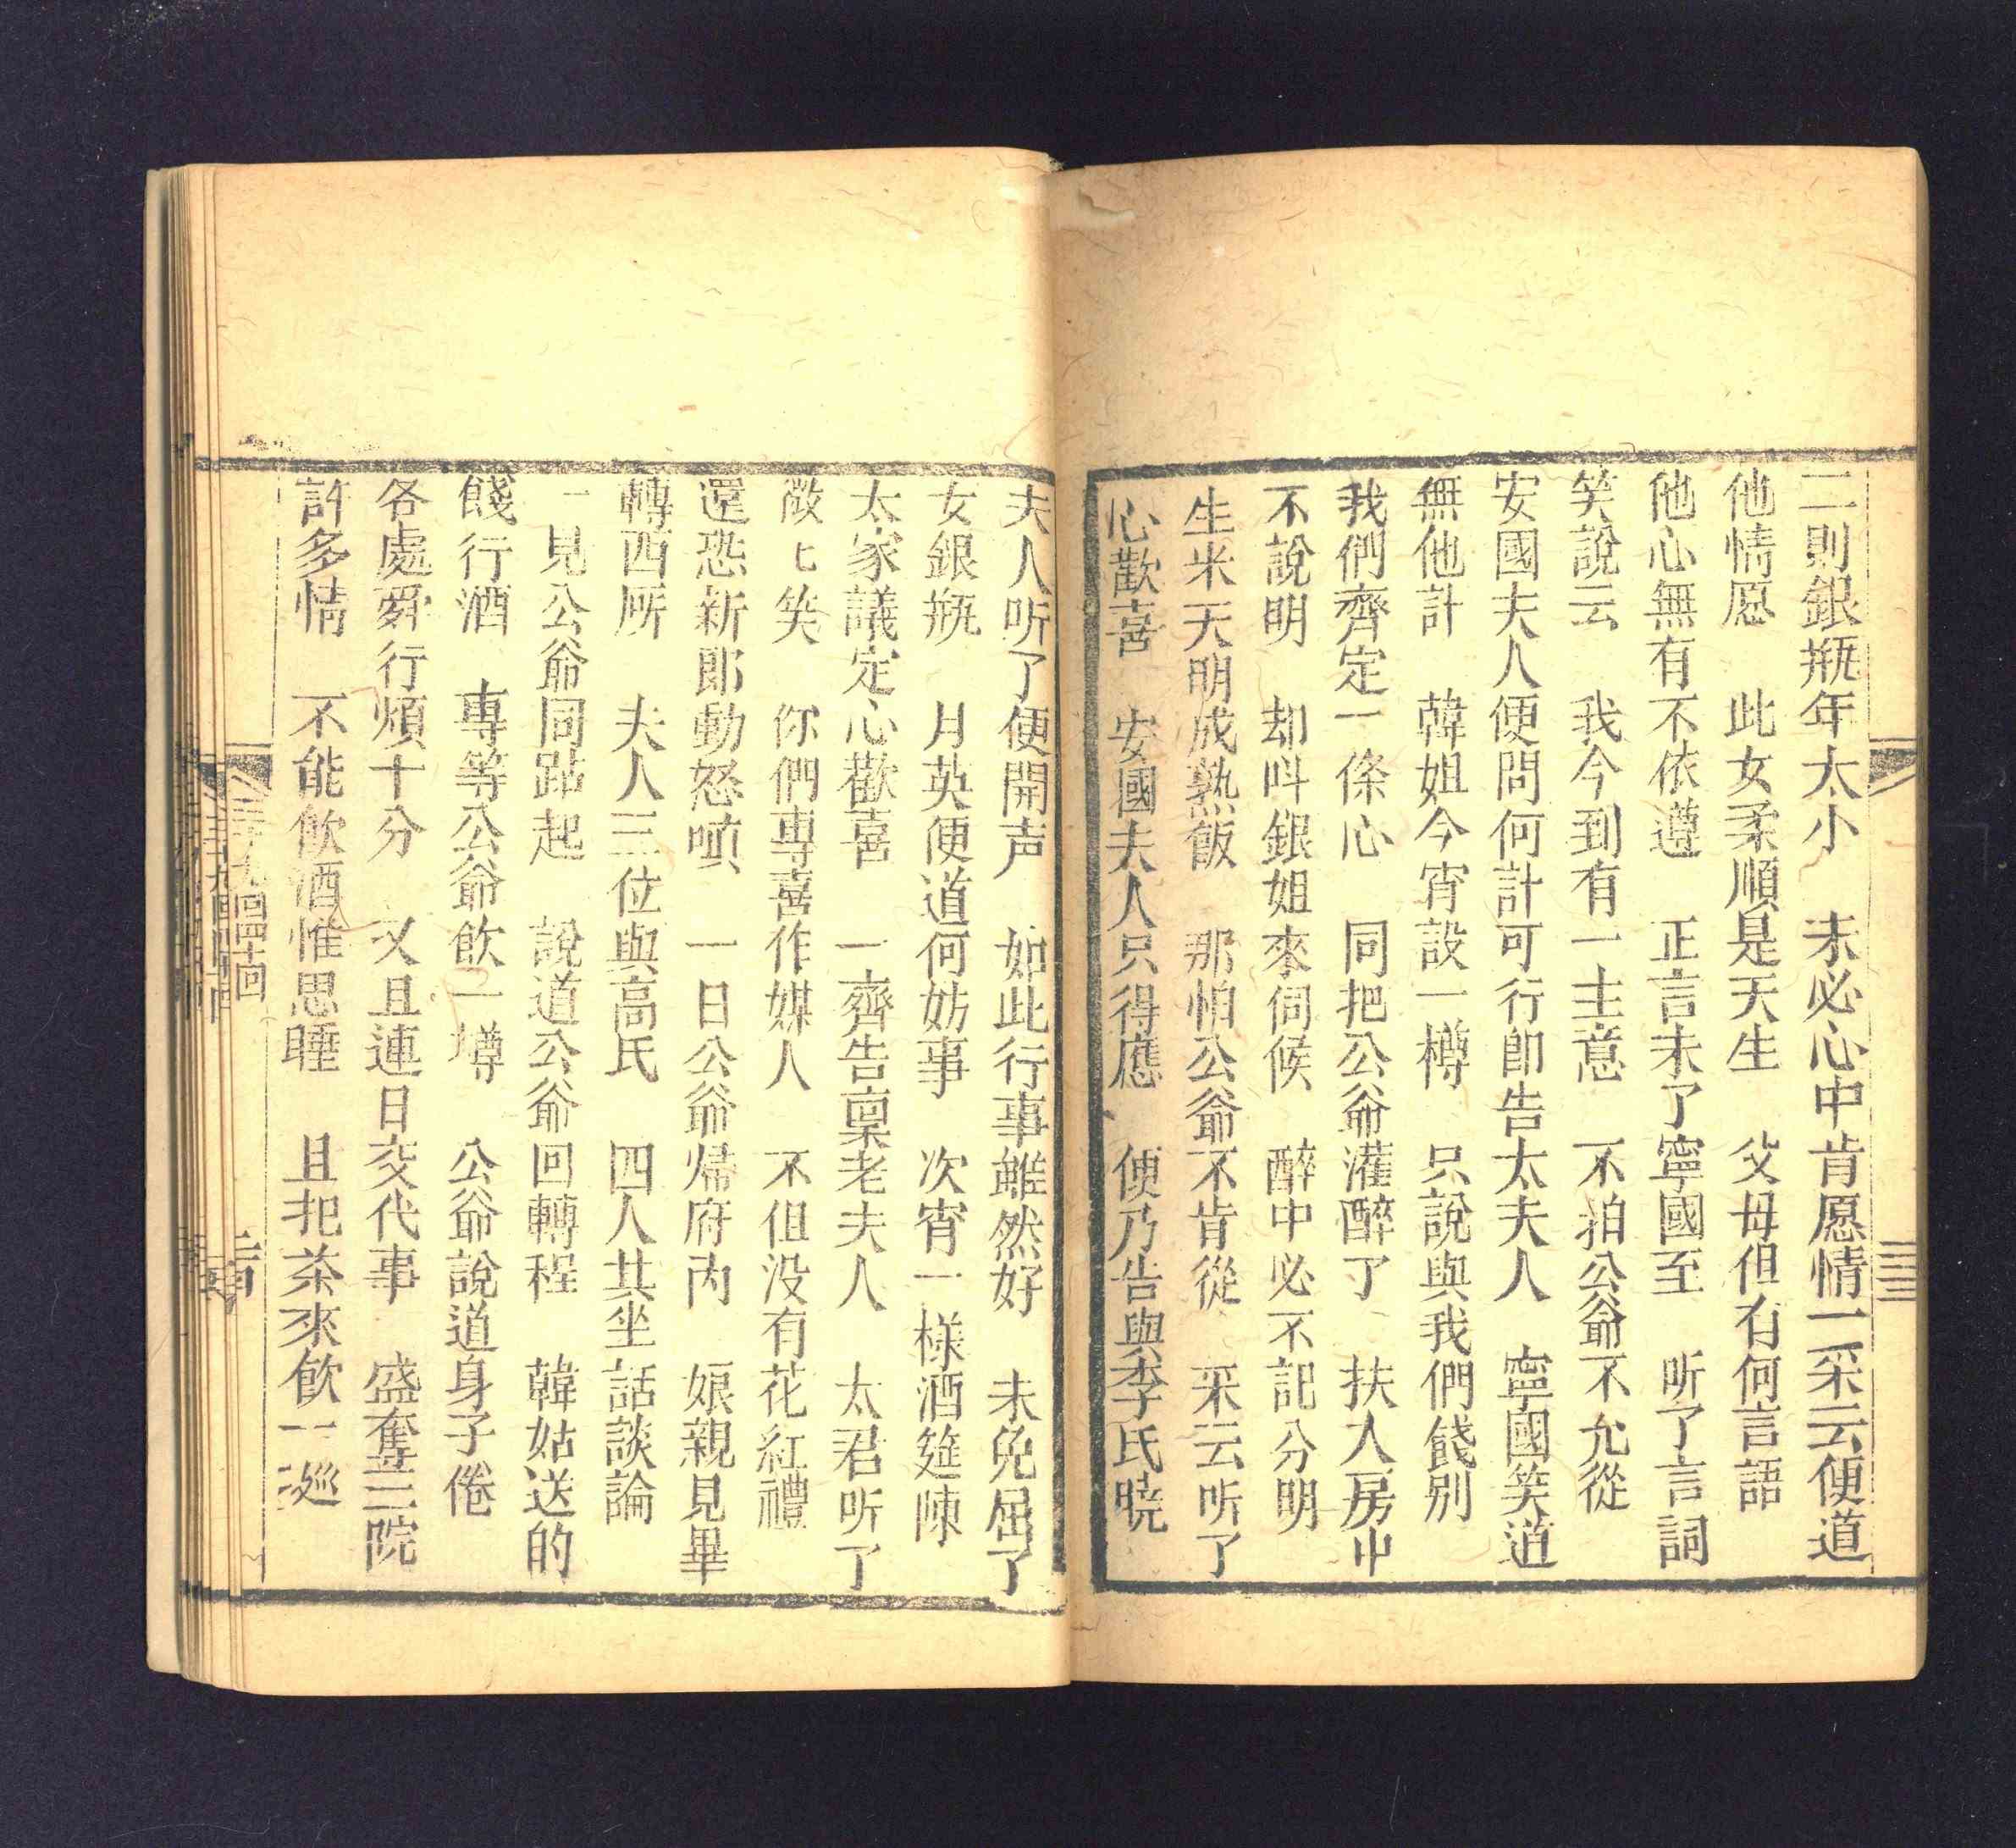 二則銀瓶年太小　未必心中肯愿情　采云便道
他情愿　此女柔順是天生　父母但有何言語
他心無有不依遵　正言未了寧國至　听了言詞
笑說云　我今到有一主意　不拍公爺不允從
安國夫人便問何計可行即告太夫人　寧國笑道
無他計　韓姐今宵設一樽　只說與我們餞別
我們齊定一條心　同把公爺灌醉了　扶入房中
不說明　却呌銀姐來伺候　醉中必不記分明
生米天明成熟飯　那怕公爺不肯從　采云听了
心歡喜　安國夫人只得應　便乃告與李氏曉
夫人听了便開声　如此行事雖然好　未免屈了
女銀瓶　月英便道何妨事　次宵一樣酒筵陳
太家議定心歡喜　一齊告稟老夫人　太君听了
微匕笑　你們專喜作媒人　不但没有花紅禮
還恐新郎動怒嗔　一日公爺歸府內　娘親見畢
轉西厢　夫人三位與高氏　四人共坐話談論
一見公爺同跕起　說道公爺回轉程　韓姑送的
餞行酒　專等公爺飲一罇　公爺說道身子倦
各處辭行煩十分　又且連日交代事　盛奪三院
許多情　不能飲酒惟思睡　且把茶來飲一巡